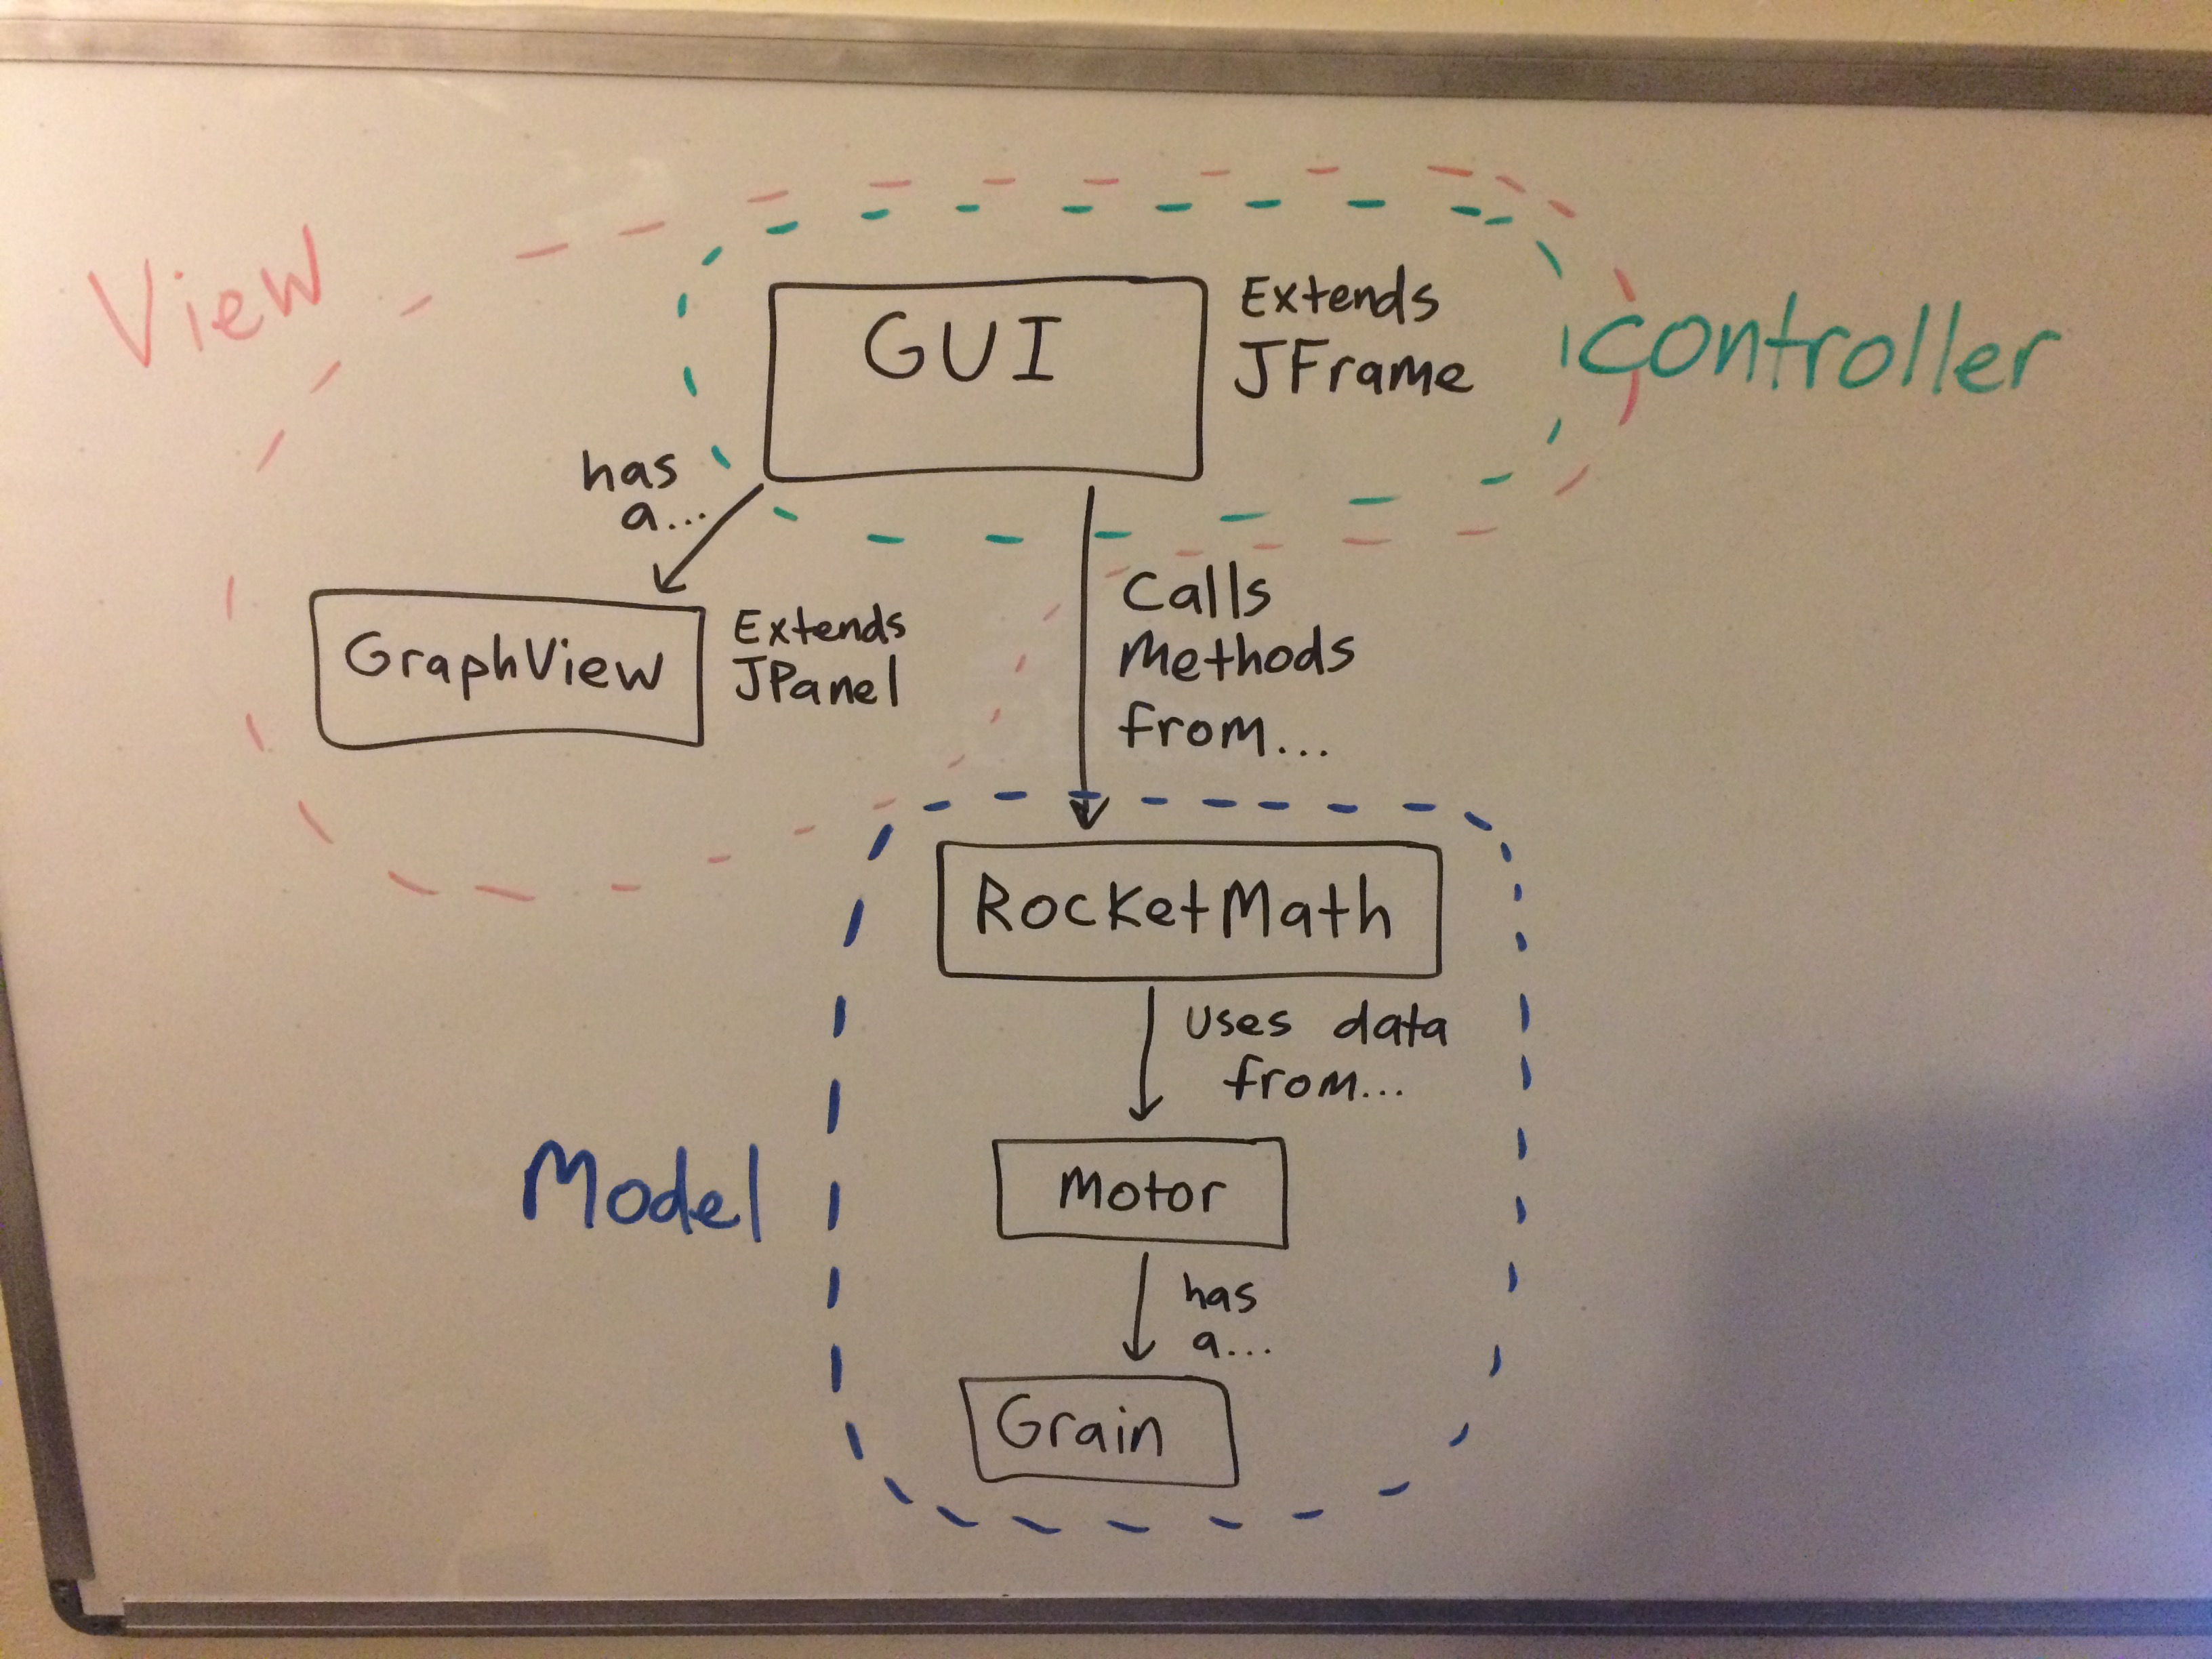 View
GUI
Extends
JFrame
controller
has
a...
GraphView
Extends
JPanel
Calls
Methods
from...
RocketMath
Uses data
from...
Model
Motor
has
a...
Grain